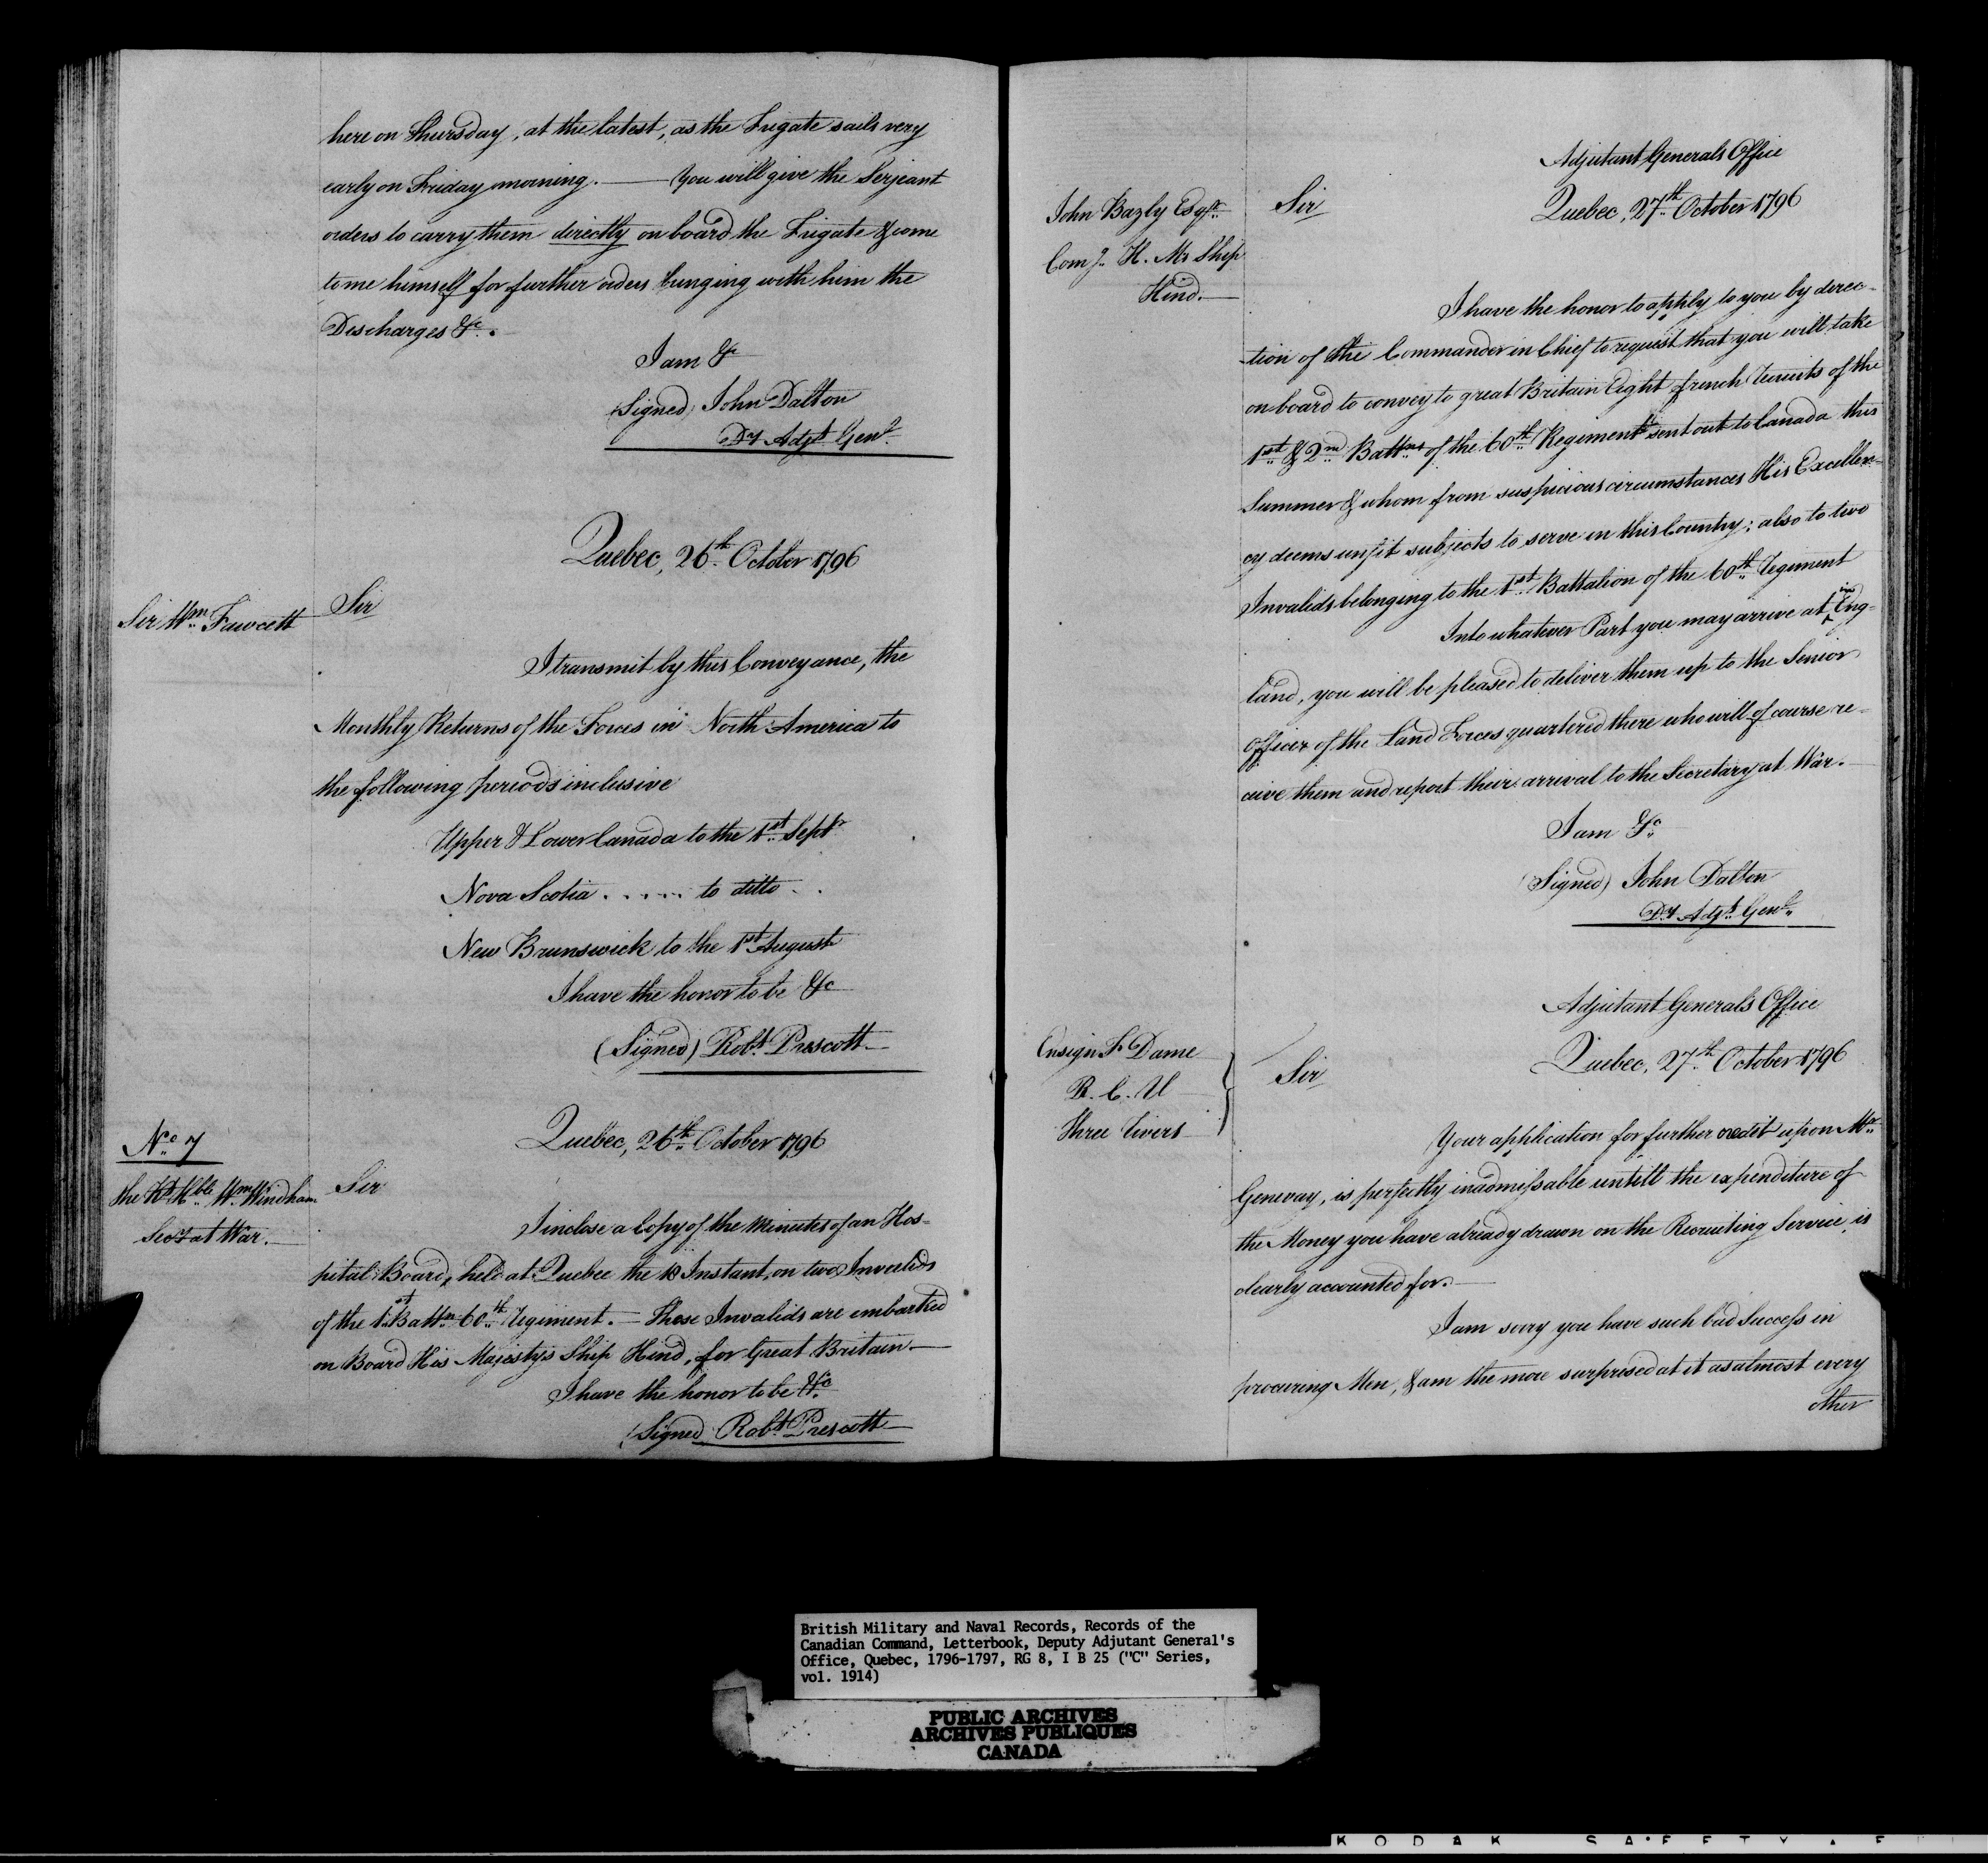 here on Thursday, at the latest, as the Frigate sails very
early on Friday morning. — You will give the Serjeant
orders to carry them directly on board the Frigate & come
to me himself for further orders bringing with him the
Discharges &c.
I am &c
(Signed) John Dalton
Dy Adjt Genl.
Quebec, 26th October 1796
Sir Wm Fawcett
Sir
I transmit by this Conveyance, the
Monthly Returns of the Forces in North America to
the following periods inclusive
Upper & Lower Canada to the 1st Septr
Nova Scotia ..... to ditto ..
New Brunswick to the 1st August
I have the honor to be &c
(Signed) Robt Prescott
No 7
Quebec, 26th October 1796
The Rt Hble Wm Windham
Secy at War.
Sir
I inclose a Copy of the Minutes of an Hos-
pital Board, held at Quebec the 18 Instant, on two Invalids
of the 1st Battn 60th Regiment. — These Invalids are embarked
on Board His Majestys Ship Hind, for Great Britain —
I have the honor to be &c
(Signed Robt Prescott
Adjutant Generals Office
Quebec, 27th October 1796
John Bazly Esqr
Comg. H. Ms Ship
Hind. —
Sir
I have the honor to apply to you by direc-
tion of the Commander in Chief to request that you will take
on board to convey to great Britain Eight french recruits of the
1st & 2nd Battns of the 60th Regiment sent out to Canada this
Summer & whom from suspicious circumstances His Excellen-
cy deems unfit subjects to serve in this Country; also to two
Invalids belonging to the 1st Battalion of the 60th Regiment
Into whatever Port you may arrive at in Eng-
land, you will be pleased to deliver them up to the Senior
Officer of the Land Forces quartered there who will of course re-
ceive them and report their arrival to the Secretary at War. —
I am &c
(Signed) John Dalton
Dy Adjt Genl.
Adjutant General's Office
Quebec, 27th October 1796
Ensign Fs Dame
R. C. V
Three Rivers
Sir
Your application for further credit upon Mr
Genevay, is perfectly inadmissable untill the expenditure of
the Money you have already drawn on the Recruiting Service, is
clearly accounted for. —
I am sorry you have such bad Success in
procuring Men, & am the more surprised at it as almost every
other
British Military and Naval Records, Records of the
Canadian Command, Letterbook, Deputy Adjutant General's
Office, Quebec, 1796-1797, RG 8, I B 25 ("C" Series,
vol. 1914)
PUBLIC ARCHIVES
ARCHIVES PUBLIQUES
CANADA
KODAK SAFETY